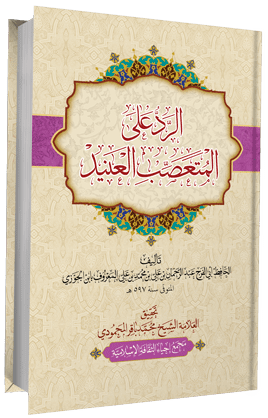 الرد على
المتعصب العنيد
تأليف
الحافظ أبي الفرج عبد الرحمان بن علي بن محمد بن علي المعروف بابن الجوزي
المتوفى سنة ٥٩٧ هـ
تحقيق
العلامة الشيخ محمد باقر المحمودي
مجمع إحياء الثقافة الإسلامية